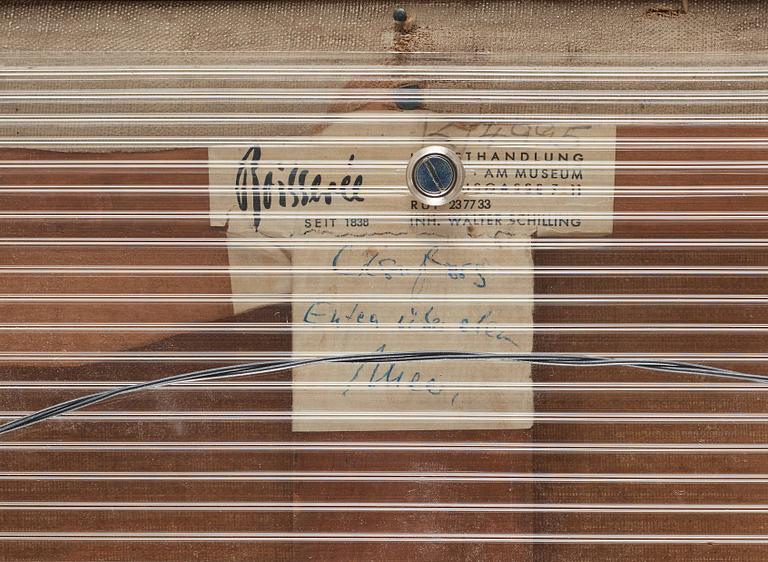 Boisserée
SEIT 1838
THANDLUNG
AM MUSEUM
SGASSE 7-11
RUF 237733
INH. WALTER SCHILLING
Enten über dem
Meer,